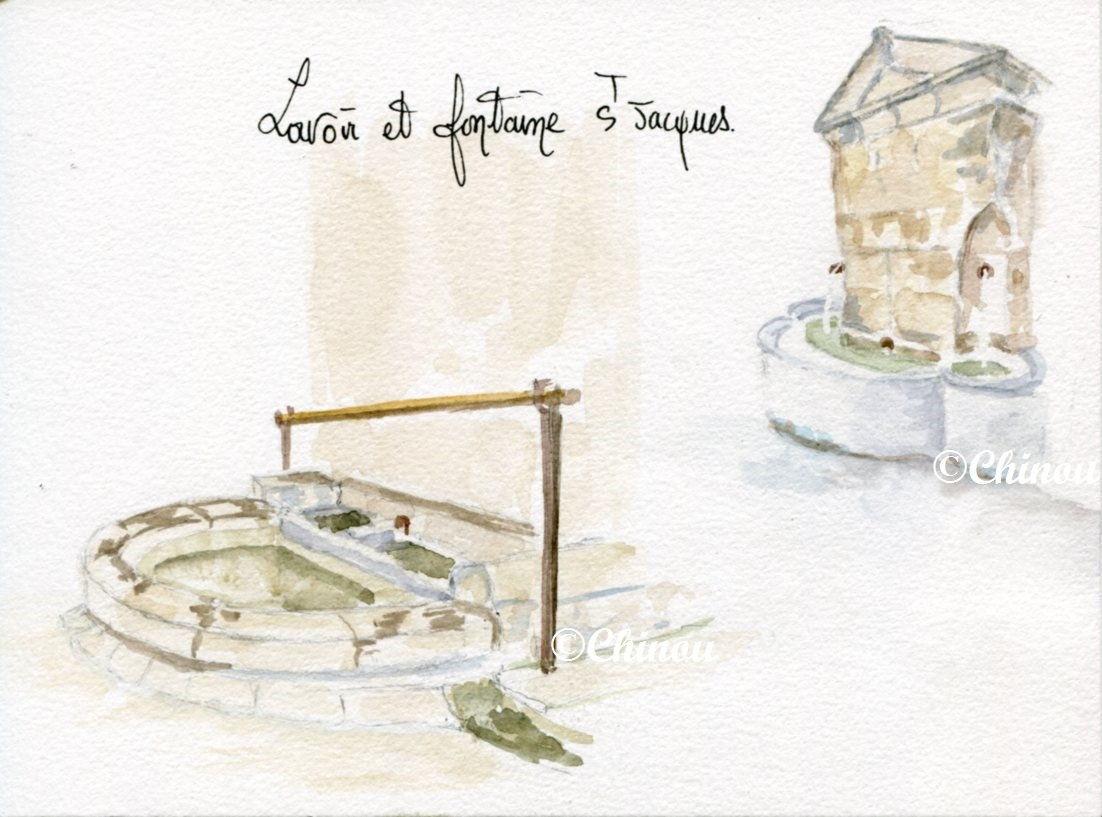 Lavoir et fontaine St Jacques.
©Chinou
©Chinou